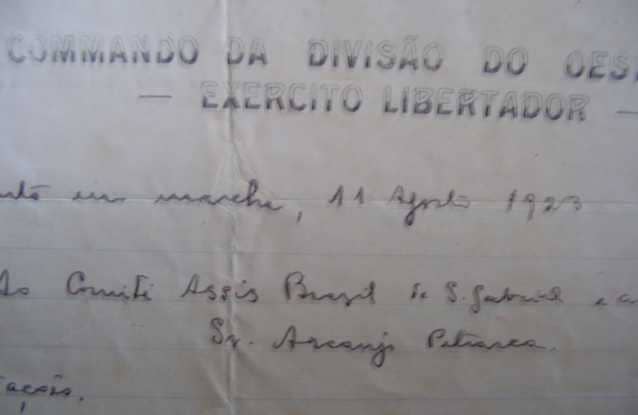 COMMANDO DA DIVISÃO DO OES
— EXERCITO LIBERTADOR —
em marcha, 11 Agosto 1923
Ao Comité Assis Brazil de S. Gabriel e a
Sr. Arcanjo Petrarca.
ações.